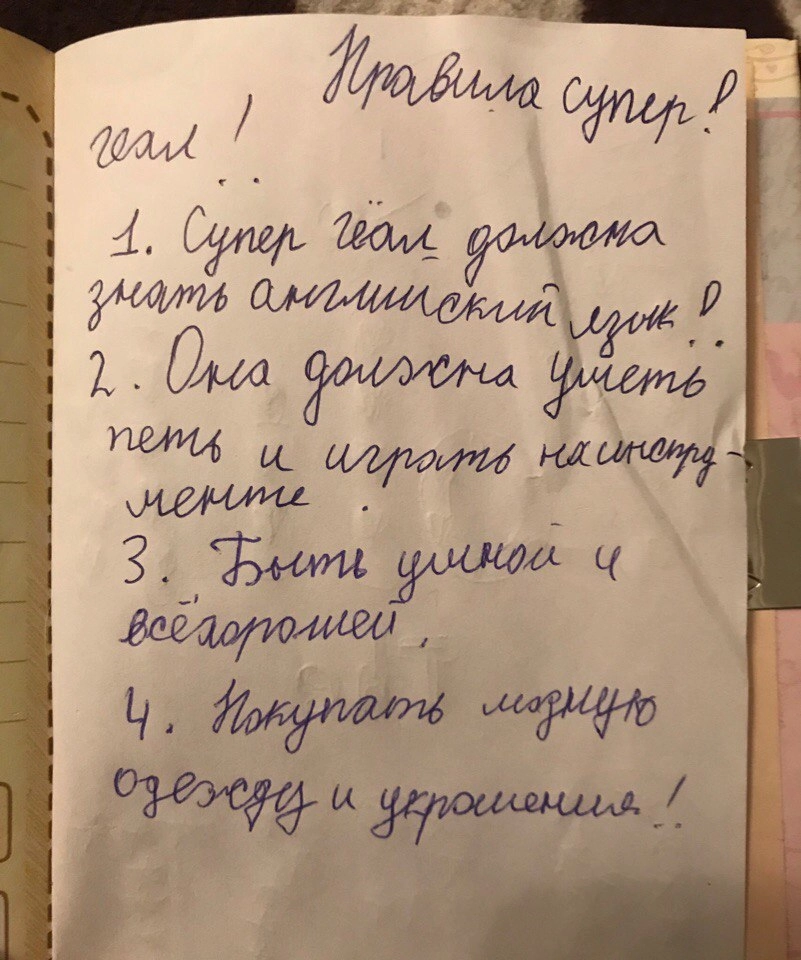 Правила супер!
гёал!
1. Супер гёал должна
знать английский язык!!
2. Она должна уметь
петь и играть на инстру-
менте.
3. Быть умной и
всёхорошей.
4. Покупать модную
одежду и украшения!